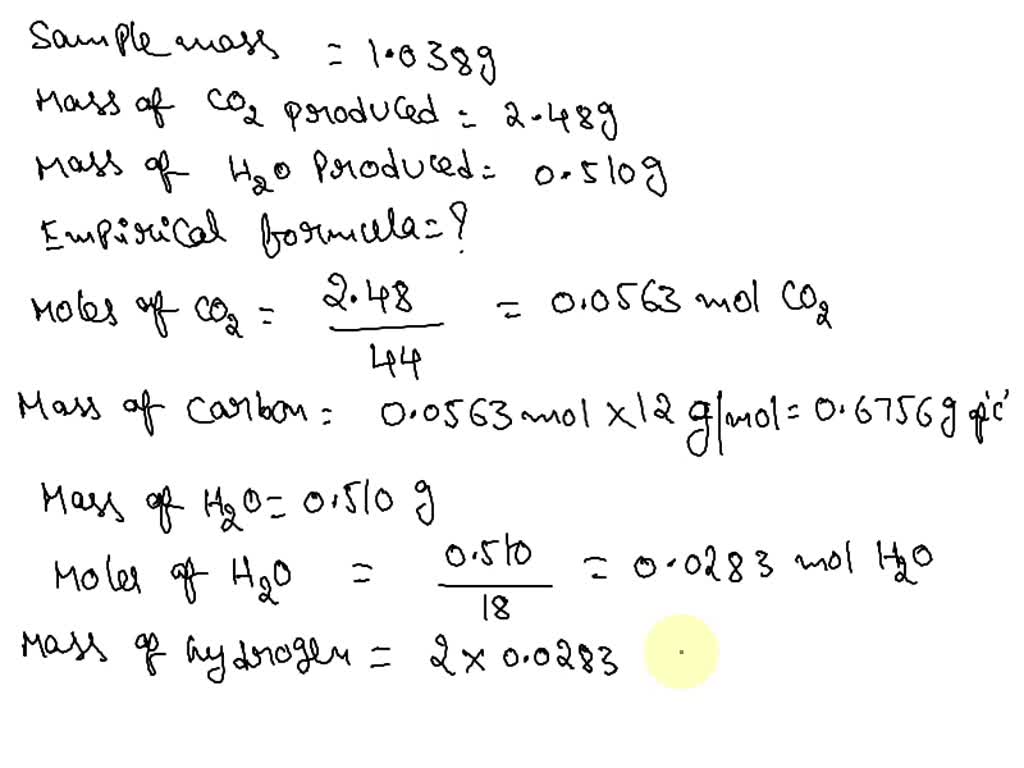 Sample mass = 1.0389
Mass of CO2 produced = 2.48g
Mass of H2O Produced = 0.510g
Empirical formula = ?
Moles of CO2 = 2.48 / 44 = 0.0563 mol CO2
Mass of Carbon = 0.0563 mol × 12 g/mol = 0.6756g of 'C'
Mass of H2O = 0.510 g
Moles of H2O = 0.510 / 18 = 0.0283 mol H2O
Mass of hydrogen = 2 × 0.0283